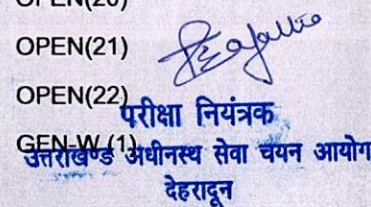 OPEN(20)
OPEN(21)
OPEN(22)
परीक्षा नियंत्रक
GEN-W (1)
उत्तराखण्ड अधीनस्थ सेवा चयन आयोग
देहरादून